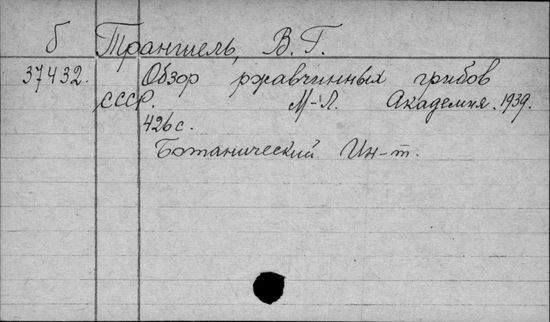 б Траншель, В. Г.
37432. Обзор ржавчинных грибов
СССР. М-Л. Академия. 1939.
426 с.
Ботанический Ин-т.